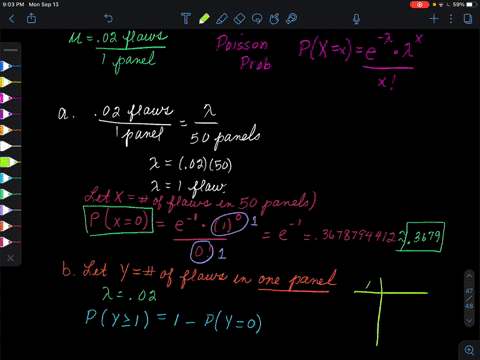 9:03 PM Mon Sep 13
59%
M = .02 flaws / 1 panel
Poisson Prob
P(X=x) = e^-λ · λ^x / x!
a. .02 flaws / 1 panel = λ / 50 panels
λ = (.02)(50)
λ = 1 flaw.
Let X = # of flaws in 50 panels)
P(x=0) = e^-1 · (1)^0 1 / 0! 1 = e^-1 = .3678794412 ≈ .3679
b. Let Y = # of flaws in one panel
λ = .02
P(Y ≥ 1) = 1 - P(Y=0)
47
48